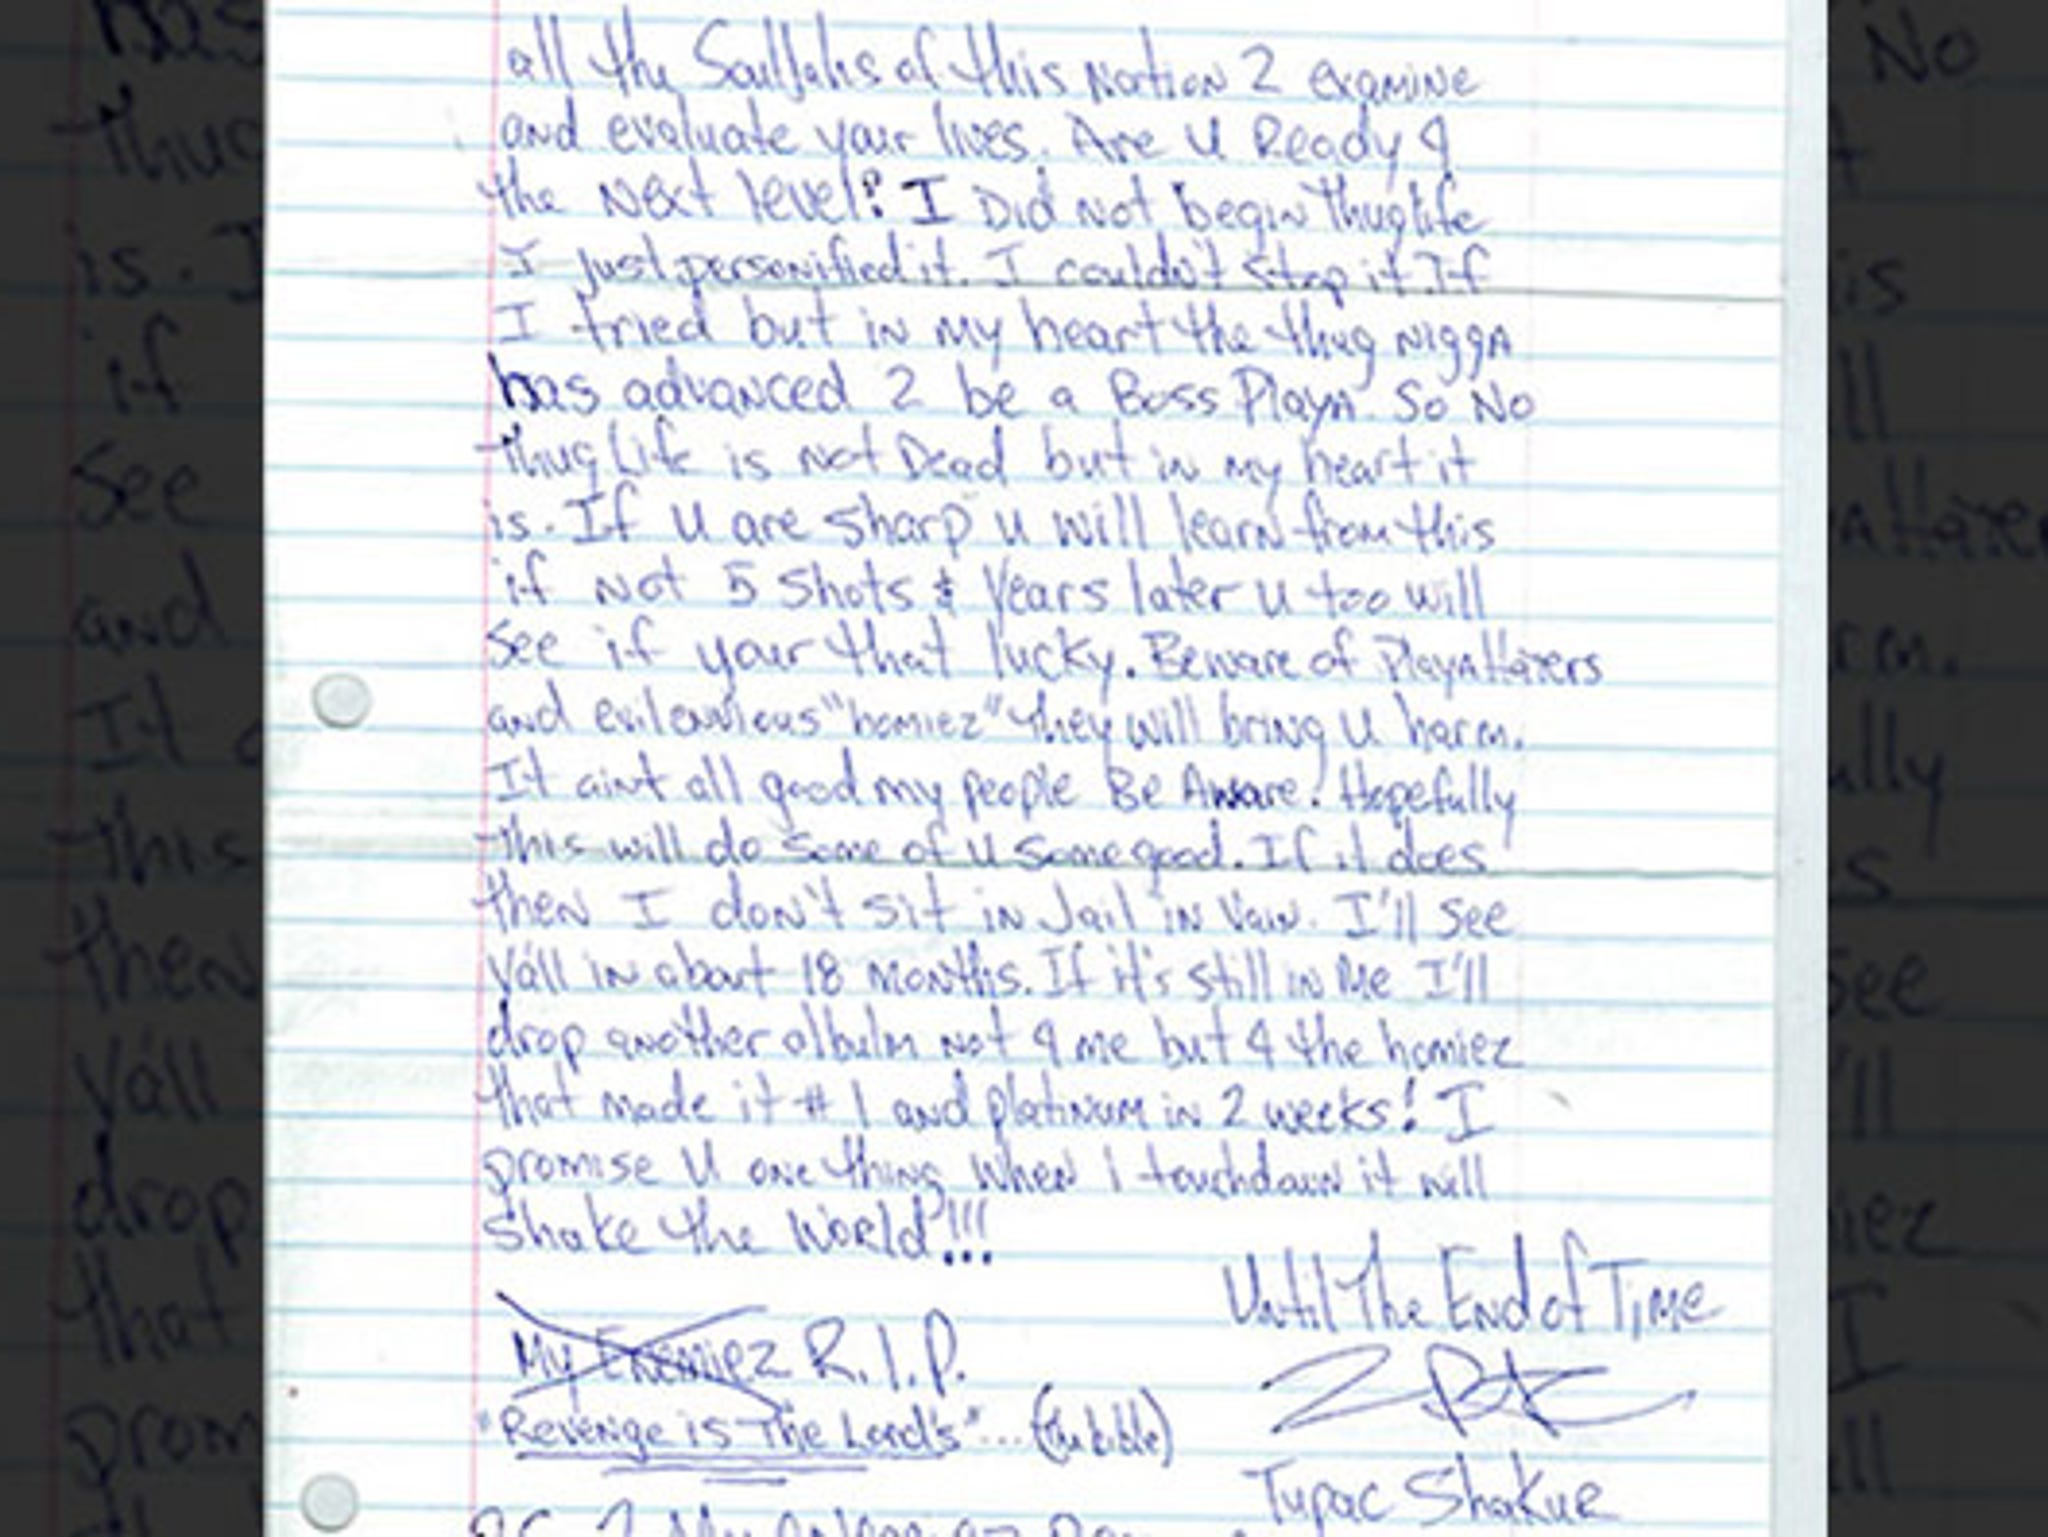 all the Souljahs of this Nation 2 examine
and evaluate your lives. Are U Ready 4
the Next level? I Did Not begin Thuglife
I just personified it. I couldn't stop it If
I tried but in my heart the thug Nigga
has advanced 2 be a Boss Playa. So No
Thug Life is Not Dead but in my heart it
is. If U are sharp U will learn from this
if Not 5 shots & Years later U too will
See if your that lucky. Beware of PlayaHaters
and evil envious "homiez" they will bring U harm.
It aint all good my people Be Aware! Hopefully
this will do some of U some good. If it does
then I don't sit in Jail in Vain. I'll see
Yáll in about 18 Months. If it's still in Me I'll
drop another album Not 4 me but 4 the homiez
that made it # 1 and platinum in 2 weeks! I
promise U one thing When I touchdown it will
Shake the World!!!
Until The End of Time
My Enemiez R.I.P.
"Revenge is The Lord's"... (the bible)
Tupac Shakur